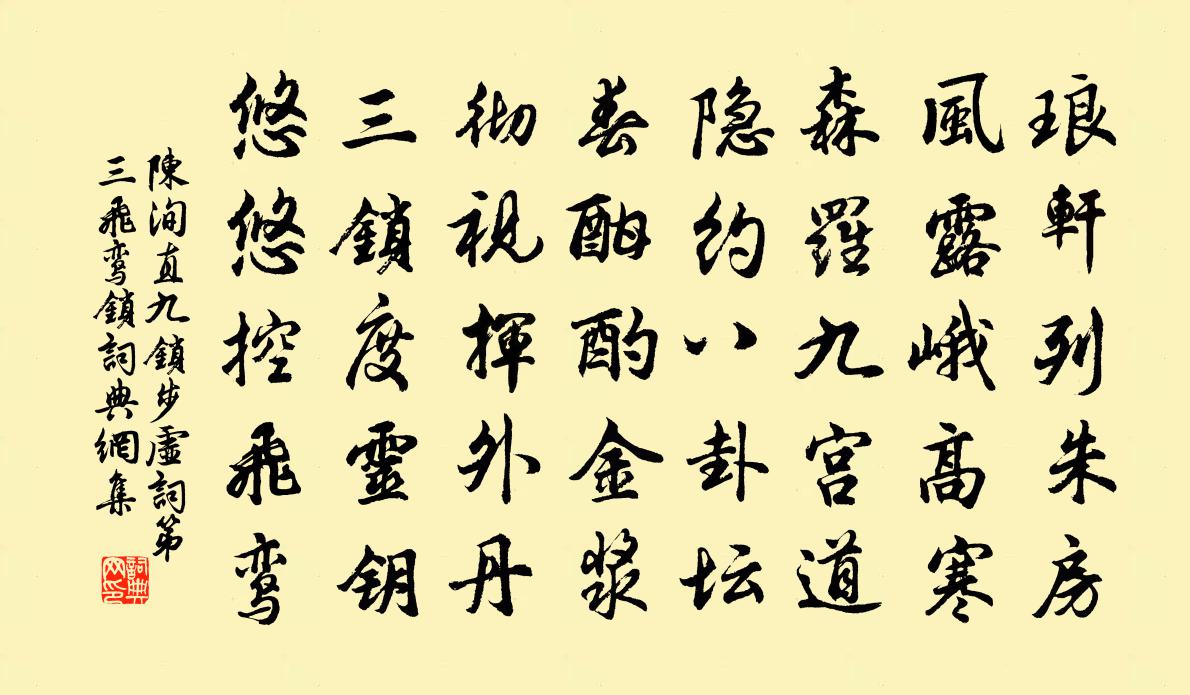 琅軒列朱房
風露峨高寒
森羅九宫道
隐約八卦坛
春酣酌金漿
彻視揮外丹
三鎖度靈钥
悠悠控飛鸾
陳洵直九鎖步虛詞第
三飛鸾鎖詞典網集
詞典
网印